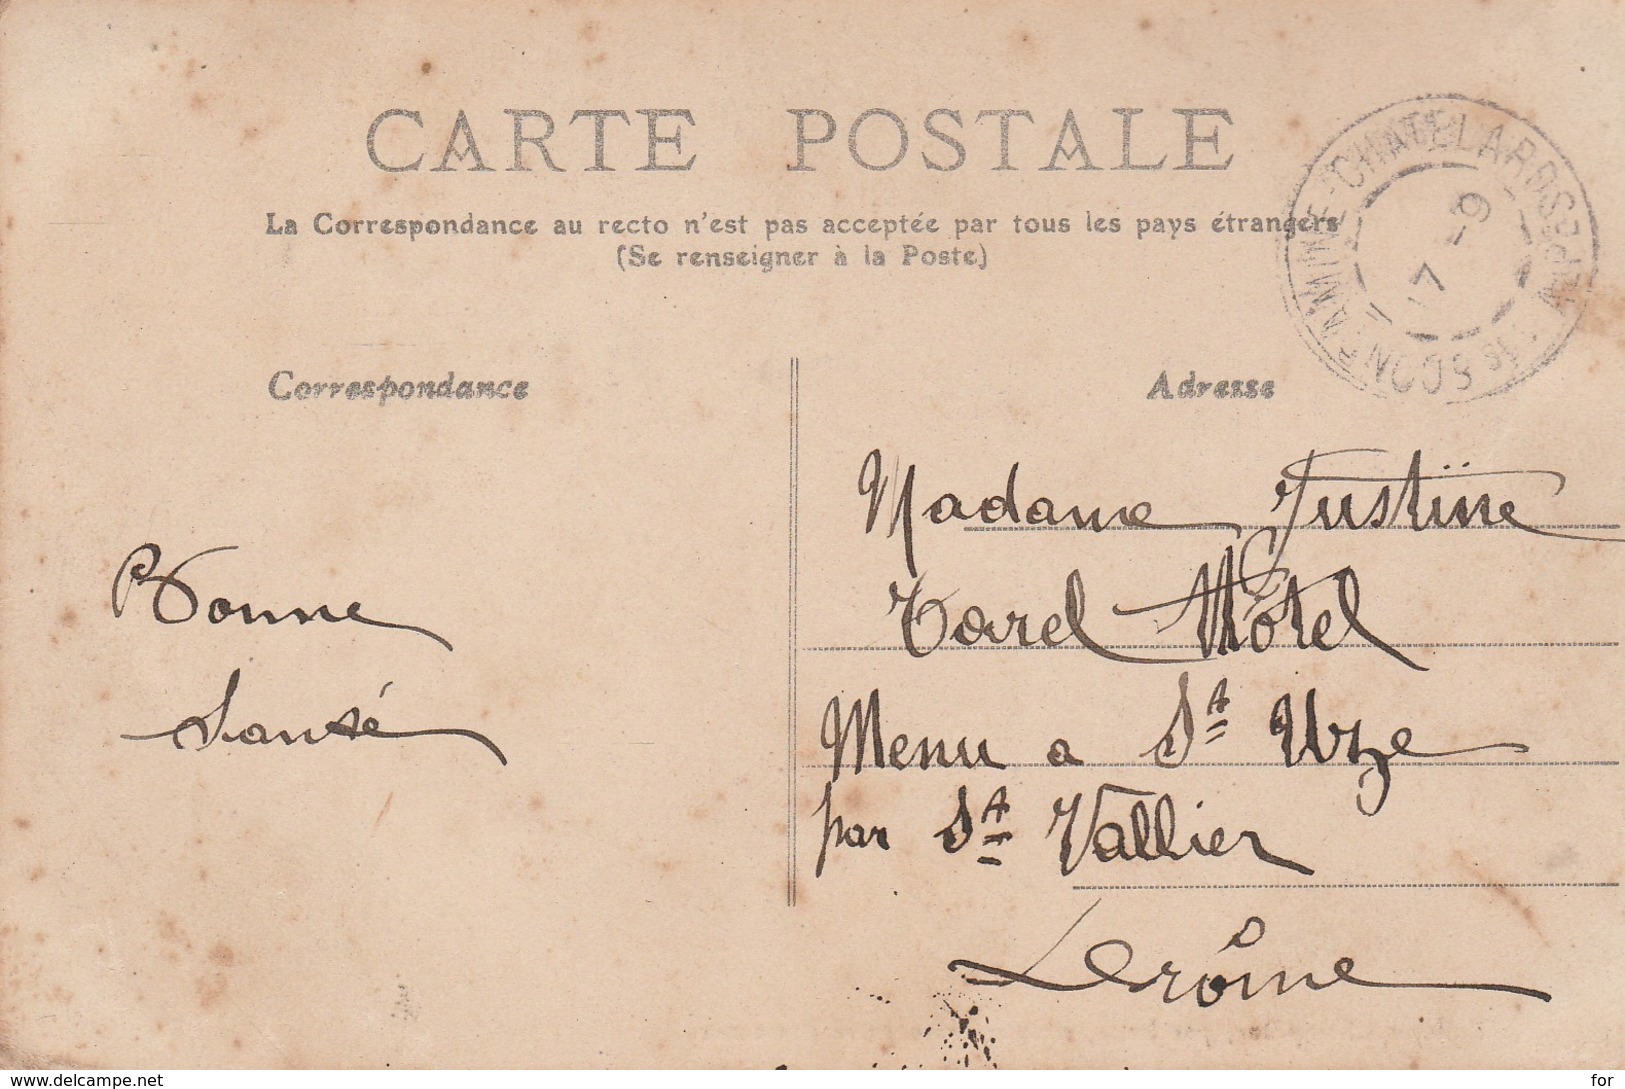 CARTE POSTALE
La Correspondance au recto n'est pas acceptée par tous les pays étrangers
(Se renseigner à la Poste)
Correspondance
Adresse
Madame Justine
Hôtel
Menu a St Uze
par St Vallier
Drôme
Bonne
Santé
www.delcampe.net
for